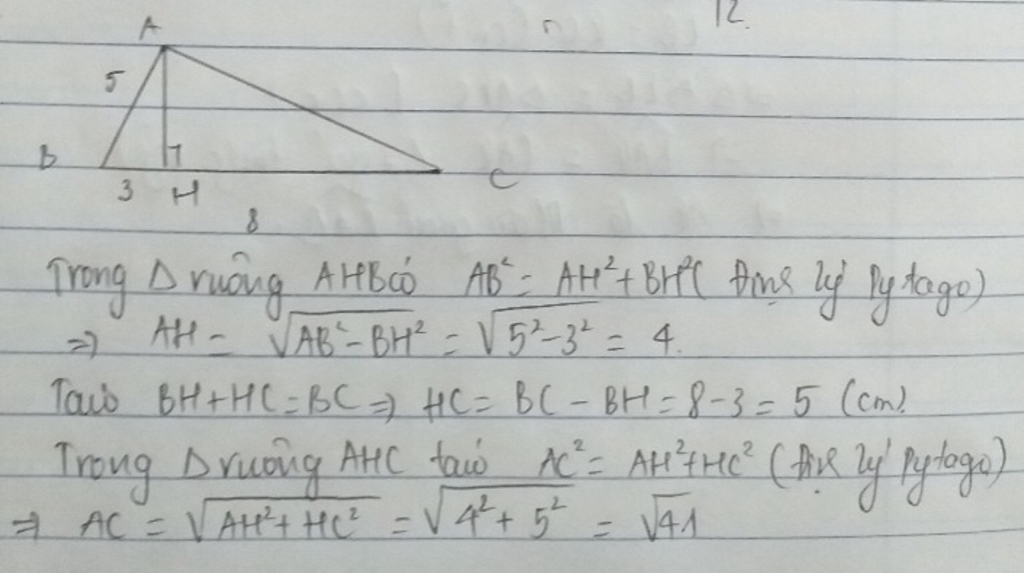 12.
A
5
B
C
3 H
8
Trong Δ vuông AHB có AB² = AH² + BH² ( Định lý Pytago)
=> AH = √AB² - BH² = √5² - 3² = 4.
Ta có BH + HC = BC => HC = BC - BH = 8 - 3 = 5 (cm)
Trong Δ vuông AHC ta có AC² = AH² + HC² (Định lý Pytago)
=> AC = √AH² + HC² = √4² + 5² = √41